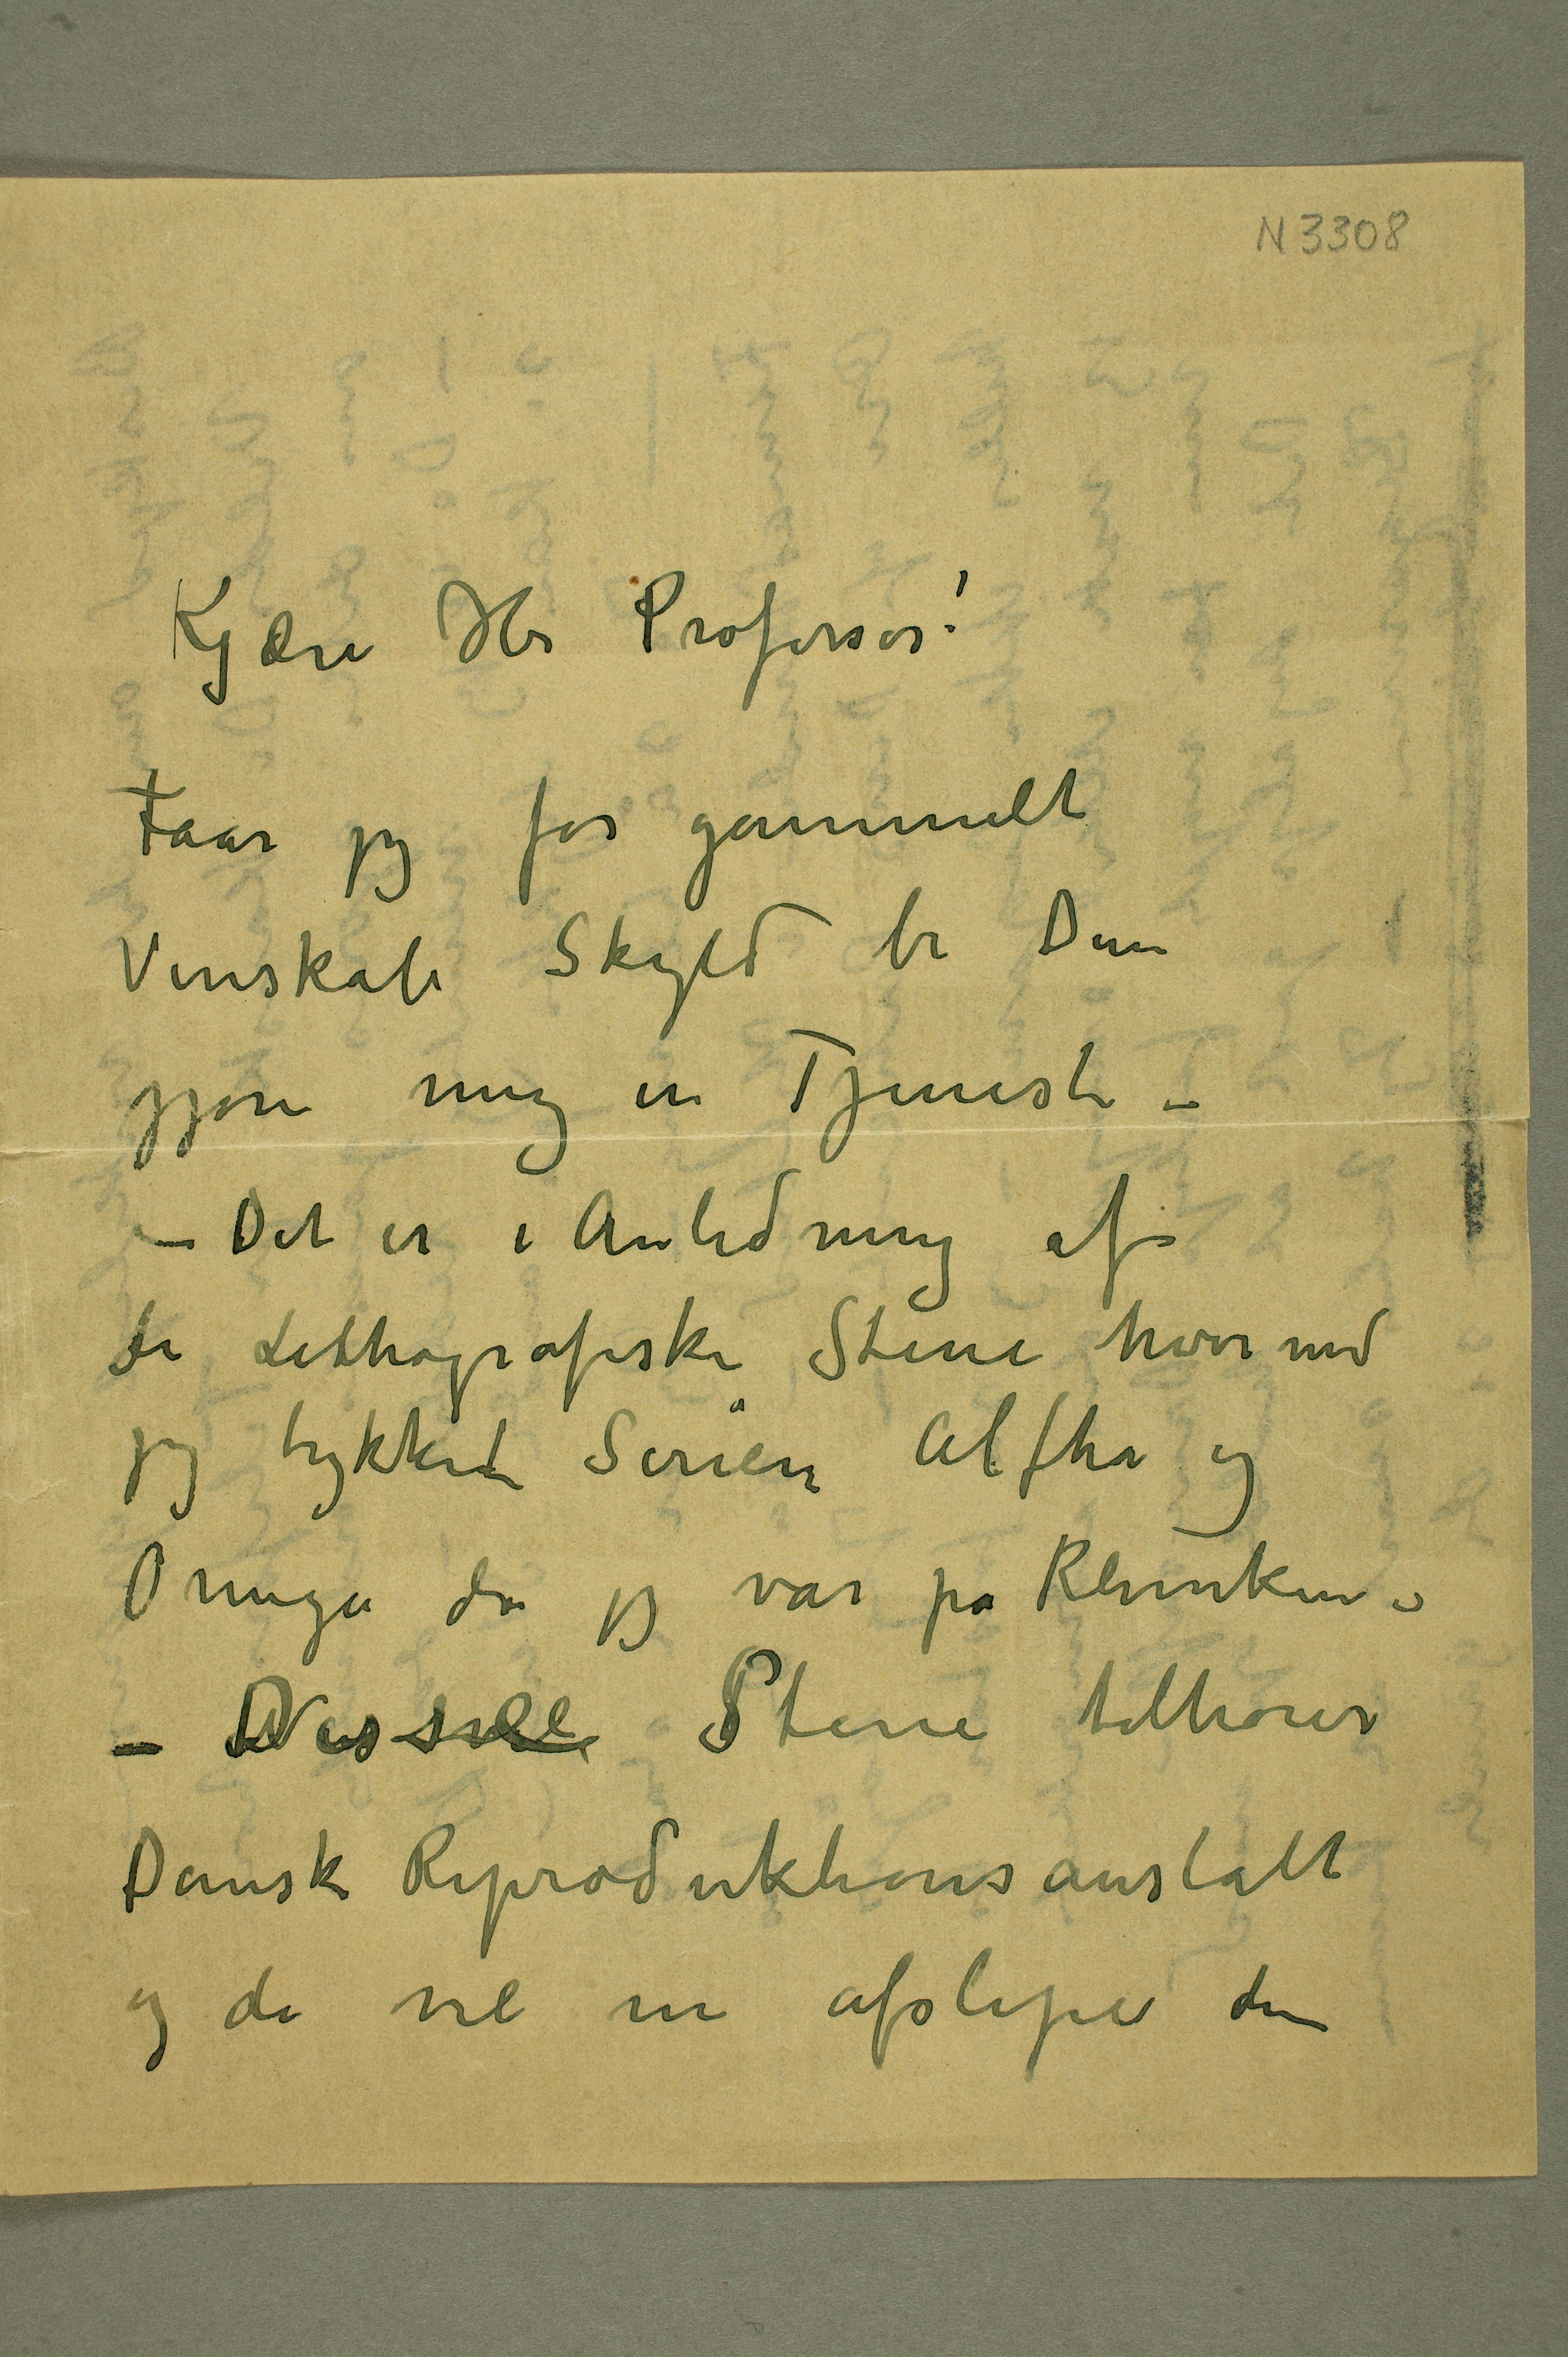 N 3308
Kjære Hr Professor!
Faar jeg for gammelt
Venskabs Skyld be Dem
gjøre mig en Tjeneste –
– Det er i Anledning af
de Lithografiske Stene hvormed
jeg trykked Serien Alfha og
Omega da jeg var på Kliniken –
– Stene tilhører
Dansk Reproduktionsanstalt
og de vil nu afslipe dem